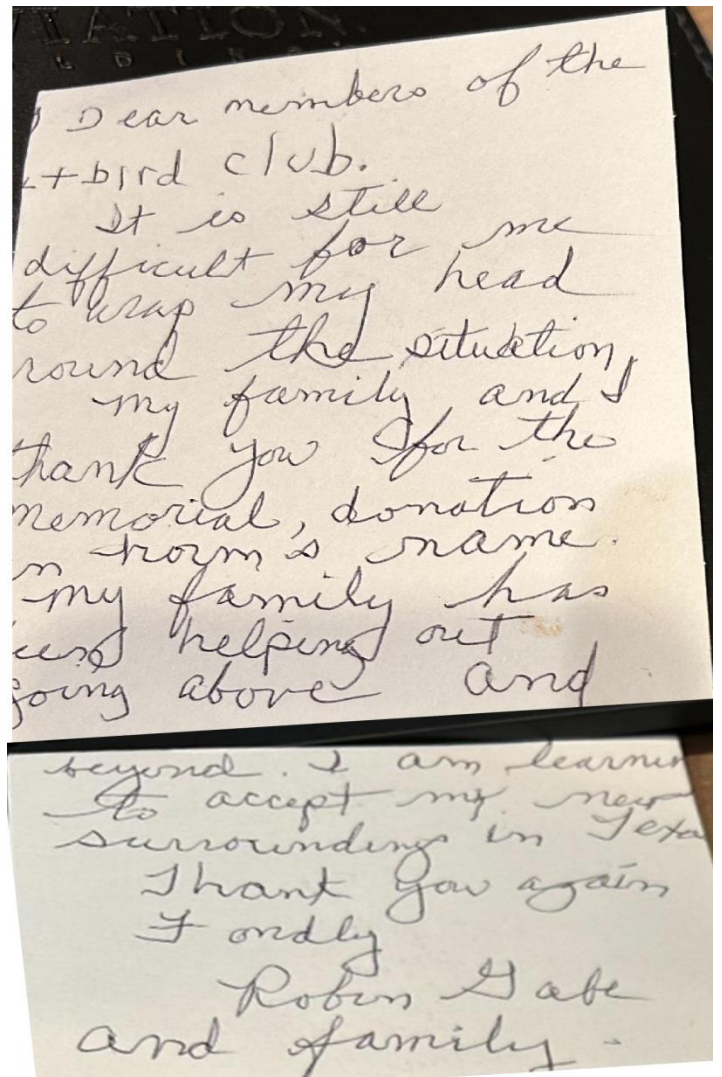 VIATION
L D I N G
Dear members of the
t+bird club.
It is still
difficult for me
to wrap my head
round the situation,
my family and I
thank you for the
memorial, donation
n norm's name.
my family has
een helping out
going above and
beyond. I am learnin
to accept my new
surroundings in Texa
Thank you again
Fondly
Robin Gabe
and family.